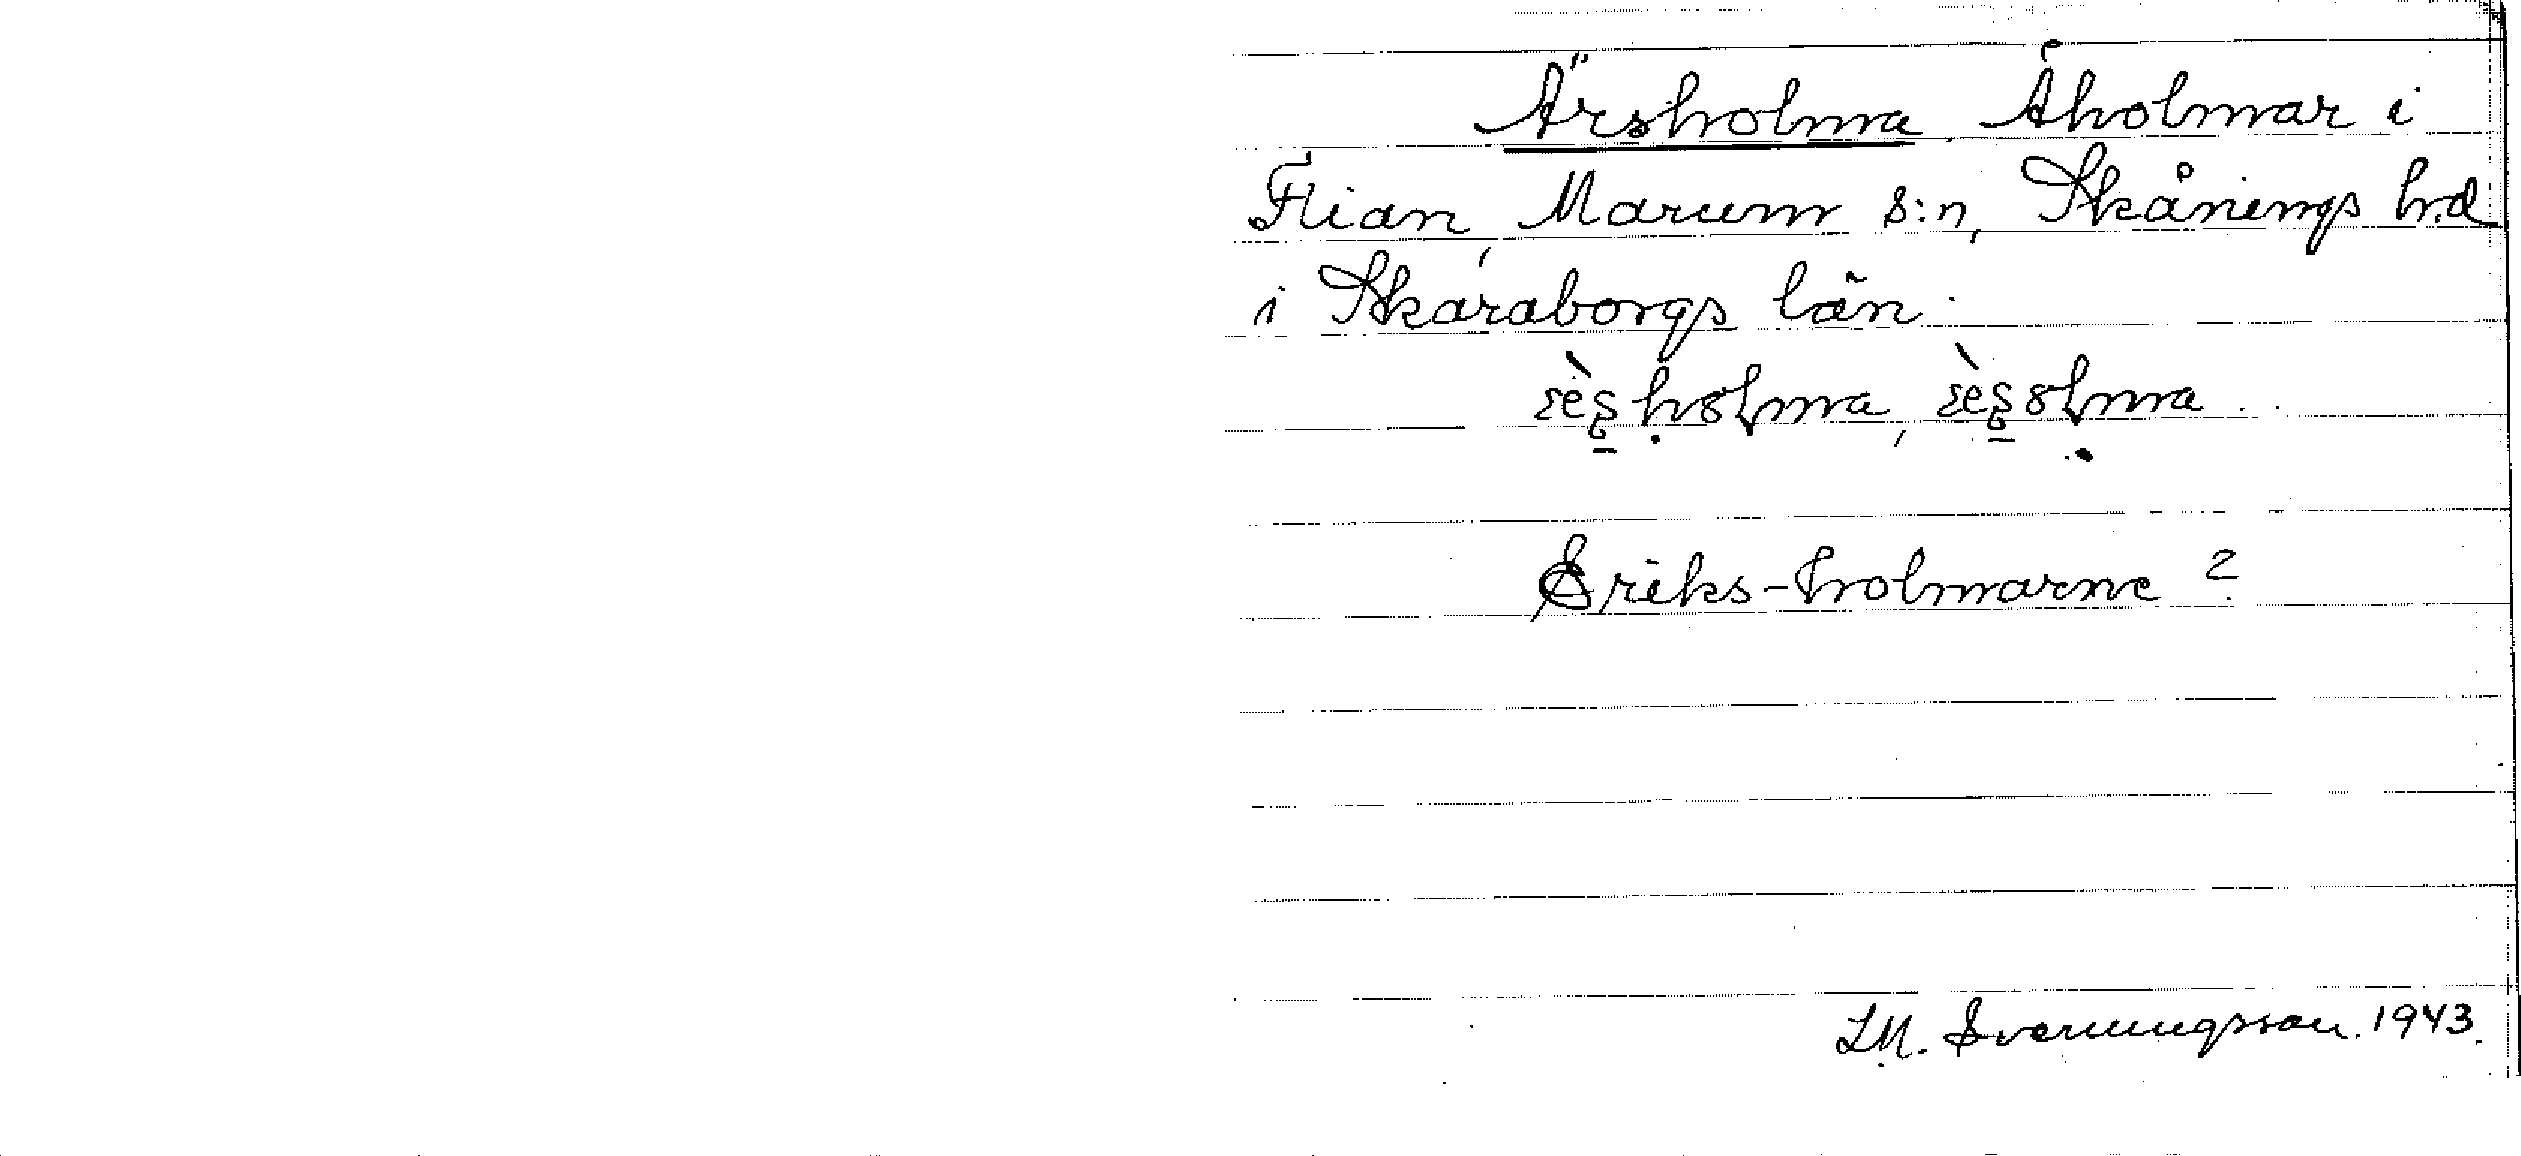 Ärsholma Åholmar i
Flian, Marum s:n, Skånings hd
i Skaraborgs län.
Eriks-holmarne?
LM. Svenungsson. 1943.